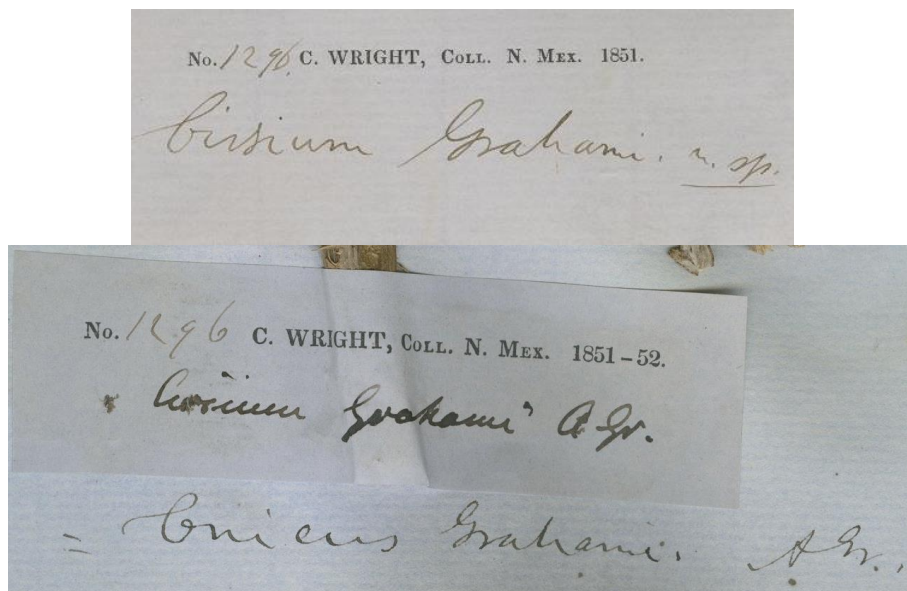 No. 1296. C. WRIGHT, COLL. N. MEX. 1851.
Cirsium Grahami. n. sp.
No. 1296 C. WRIGHT, COLL. N. MEX. 1851–52.
Cirsium Grahami A Gr.
= Cnicus Grahami. A Gr.